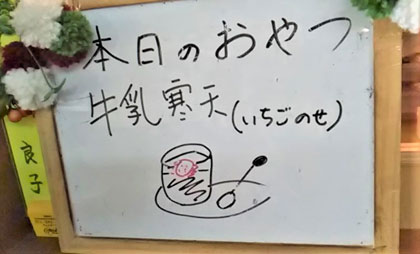 本日のおやつ
牛乳寒天(いちごのせ)
良子